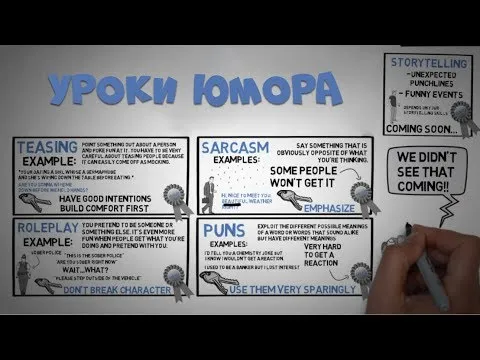 УРОКИ ЮМОРА
TEASING
POINT SOMETHING OUT ABOUT A PERSON
AND POKE FUN AT IT. YOU HAVE TO BE VERY
CAREFUL ABOUT TEASING PEOPLE BECAUSE
IT CAN EASILY COME OFF AS MOCKING.
EXAMPLE:
HAVE GOOD INTENTIONS
BUILD COMFORT FIRST
SARCASM
SAY SOMETHING THAT IS
OBVIOUSLY OPPOSITE OF WHAT
YOU'RE THINKING.
EXAMPLES:
SOME PEOPLE
WON'T GET IT
NICE TO MEET YOU
BEAUTIFUL WEATHER
EMPHASIZE
ROLEPLAY
YOU PRETEND TO BE SOMEONE OR
SOMETHING ELSE. IT'S EVEN MORE
FUN WHEN PEOPLE GET WHAT YOU'RE
DOING AND PRETEND WITH YOU.
EXAMPLE:
SOBER POLICE
"THIS IS THE SOBER POLICE
ARE YOU SOBER RIGHT NOW"
WAIT...WHAT?
"PLEASE STEP OUTSIDE OF THE VEHICLE"
DON'T BREAK CHARACTER
PUNS
EXPLOIT THE DIFFERENT POSSIBLE MEANINGS
OF A WORD OR WORDS THAT SOUND ALIKE
BUT HAVE DIFFERENT MEANINGS
EXAMPLES:
I'D TELL YOU A CHEMISTRY JOKE BUT
I KNOW I WOULDN'T GET A REACTION
I USED TO BE A BANKER BUT I LOST INTEREST
VERY HARD
TO GET A
REACTION
USE THEM VERY SPARINGLY
STORYTELLING
- UNEXPECTED
PUNCHLINES
- FUNNY EVENTS
DEPENDS ON YOUR
STORYTELLING SKILLS
COMING SOON...
WE DIDN'T
SEE THAT
COMING!!